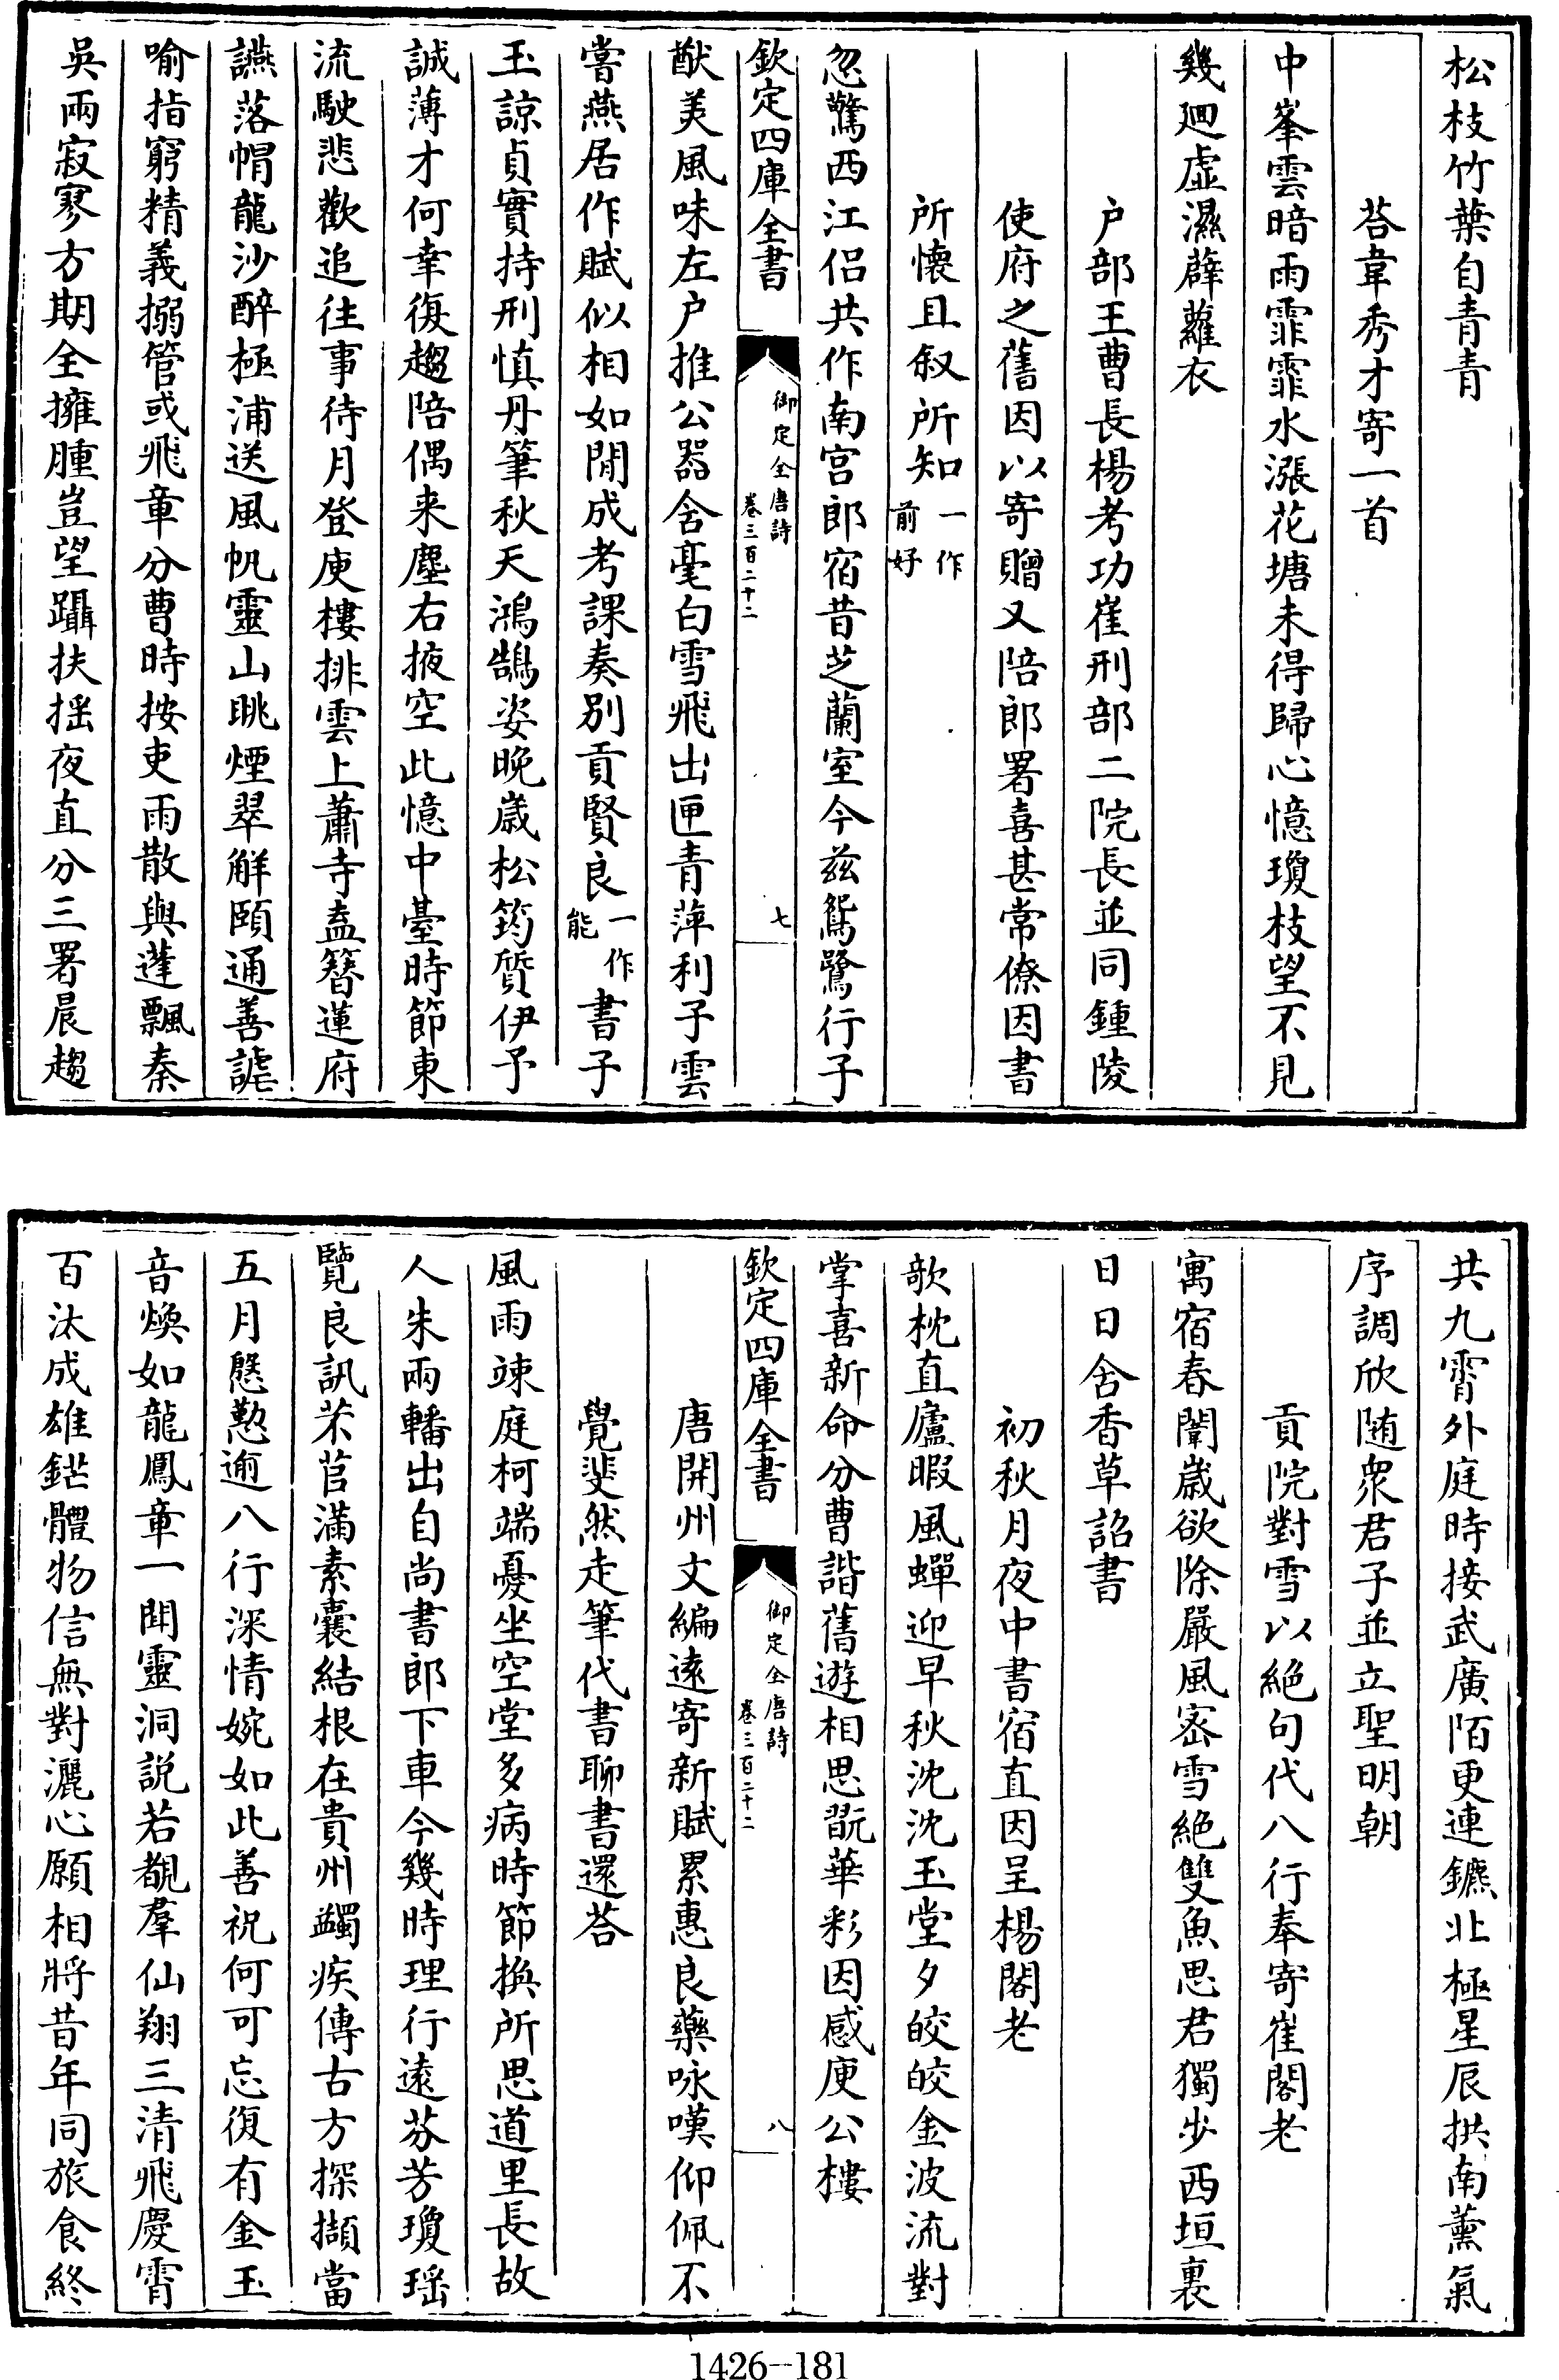 松枝竹葉自青青
荅韋秀才寄一首
中峯雲暗雨霏霏水漲花塘未得歸心憶瓊枝望不見
幾廻虛濕薜蘿衣
户部王曹長楊考功崔刑部二院長並同鍾陵
使府之舊因以寄贈又陪郎署喜甚常僚因書
所懷且叙所知一作前好
忽驚西江侣共作南宫郎宿昔芝蘭室今兹鴛鷺行子
欽定四庫全書 御定全唐詩 卷三百二十二 七
猷美風味左户推公器含毫白雪飛出匣青萍利子雲
嘗燕居作賦似相如閒成考課奏别貢賢良一作能書子
玉諒貞實持刑慎丹筆秋天鴻鵠姿晚歲松筠質伊予
誠薄才何幸復趨陪偶来塵右掖空此憶中臺時節東
流駛悲歡追往事待月登庾樓排雲上蕭寺盍簪蓮府
讌落帽龍沙醉極浦送風帆靈山眺煙翠解頤通善謔
喻指窮精義搦管或飛章分曹時按吏雨散與蓬飄秦
吳兩寂寥方期全擁腫豈望躡扶揺夜直分三署晨趨
共九霄外庭時接武廣陌更連鑣北極星辰拱南薰氣
序調欣随衆君子並立聖明朝
貢院對雪以絶句代八行奉寄崔閣老
寓宿春闈歲欲除嚴風宻雪絶雙魚思君獨步西垣裏
日日含香草詔書
初秋月夜中書宿直因呈楊閣老
欹枕直廬暇風蟬迎早秋沈沈玉堂夕皎皎金波流對
掌喜新命分曹諧舊遊相思翫華彩因感庾公樓
欽定四庫全書 御定全唐詩 卷三百二十二 八
唐開州文編遠寄新賦累惠良藥咏嘆仰佩不
覺斐然走筆代書聊書還荅
風雨竦庭柯端憂坐空堂多病時節换所思道里長故
人朱兩轓出自尚書郎下車今幾時理行遠芬芳瓊瑶
覽良訊芣苢滿素囊結根在貴州蠲疾傳古方探擷當
五月慇懃逾八行深情婉如此善祝何可忘復有金玉
音煥如龍鳳章一聞靈洞説若覩羣仙翔三清飛慶霄
百汰成雄鋩體物信無對灑心願相將昔年同旅食終
1426-181